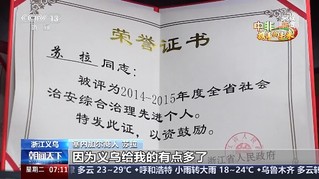 荣誉证书
苏拉 同志：
被评为2014-2015年度全省社会
治安综合治理先进个人。
特发此证，以资鼓励。
省人民政府
浙江义乌
塞内加尔商人 苏拉
朝闻天下
因为义乌给我的有点多了
星期二 07:11
23~29℃ 呼和浩特 小雨转大雨 18~23℃ 西安